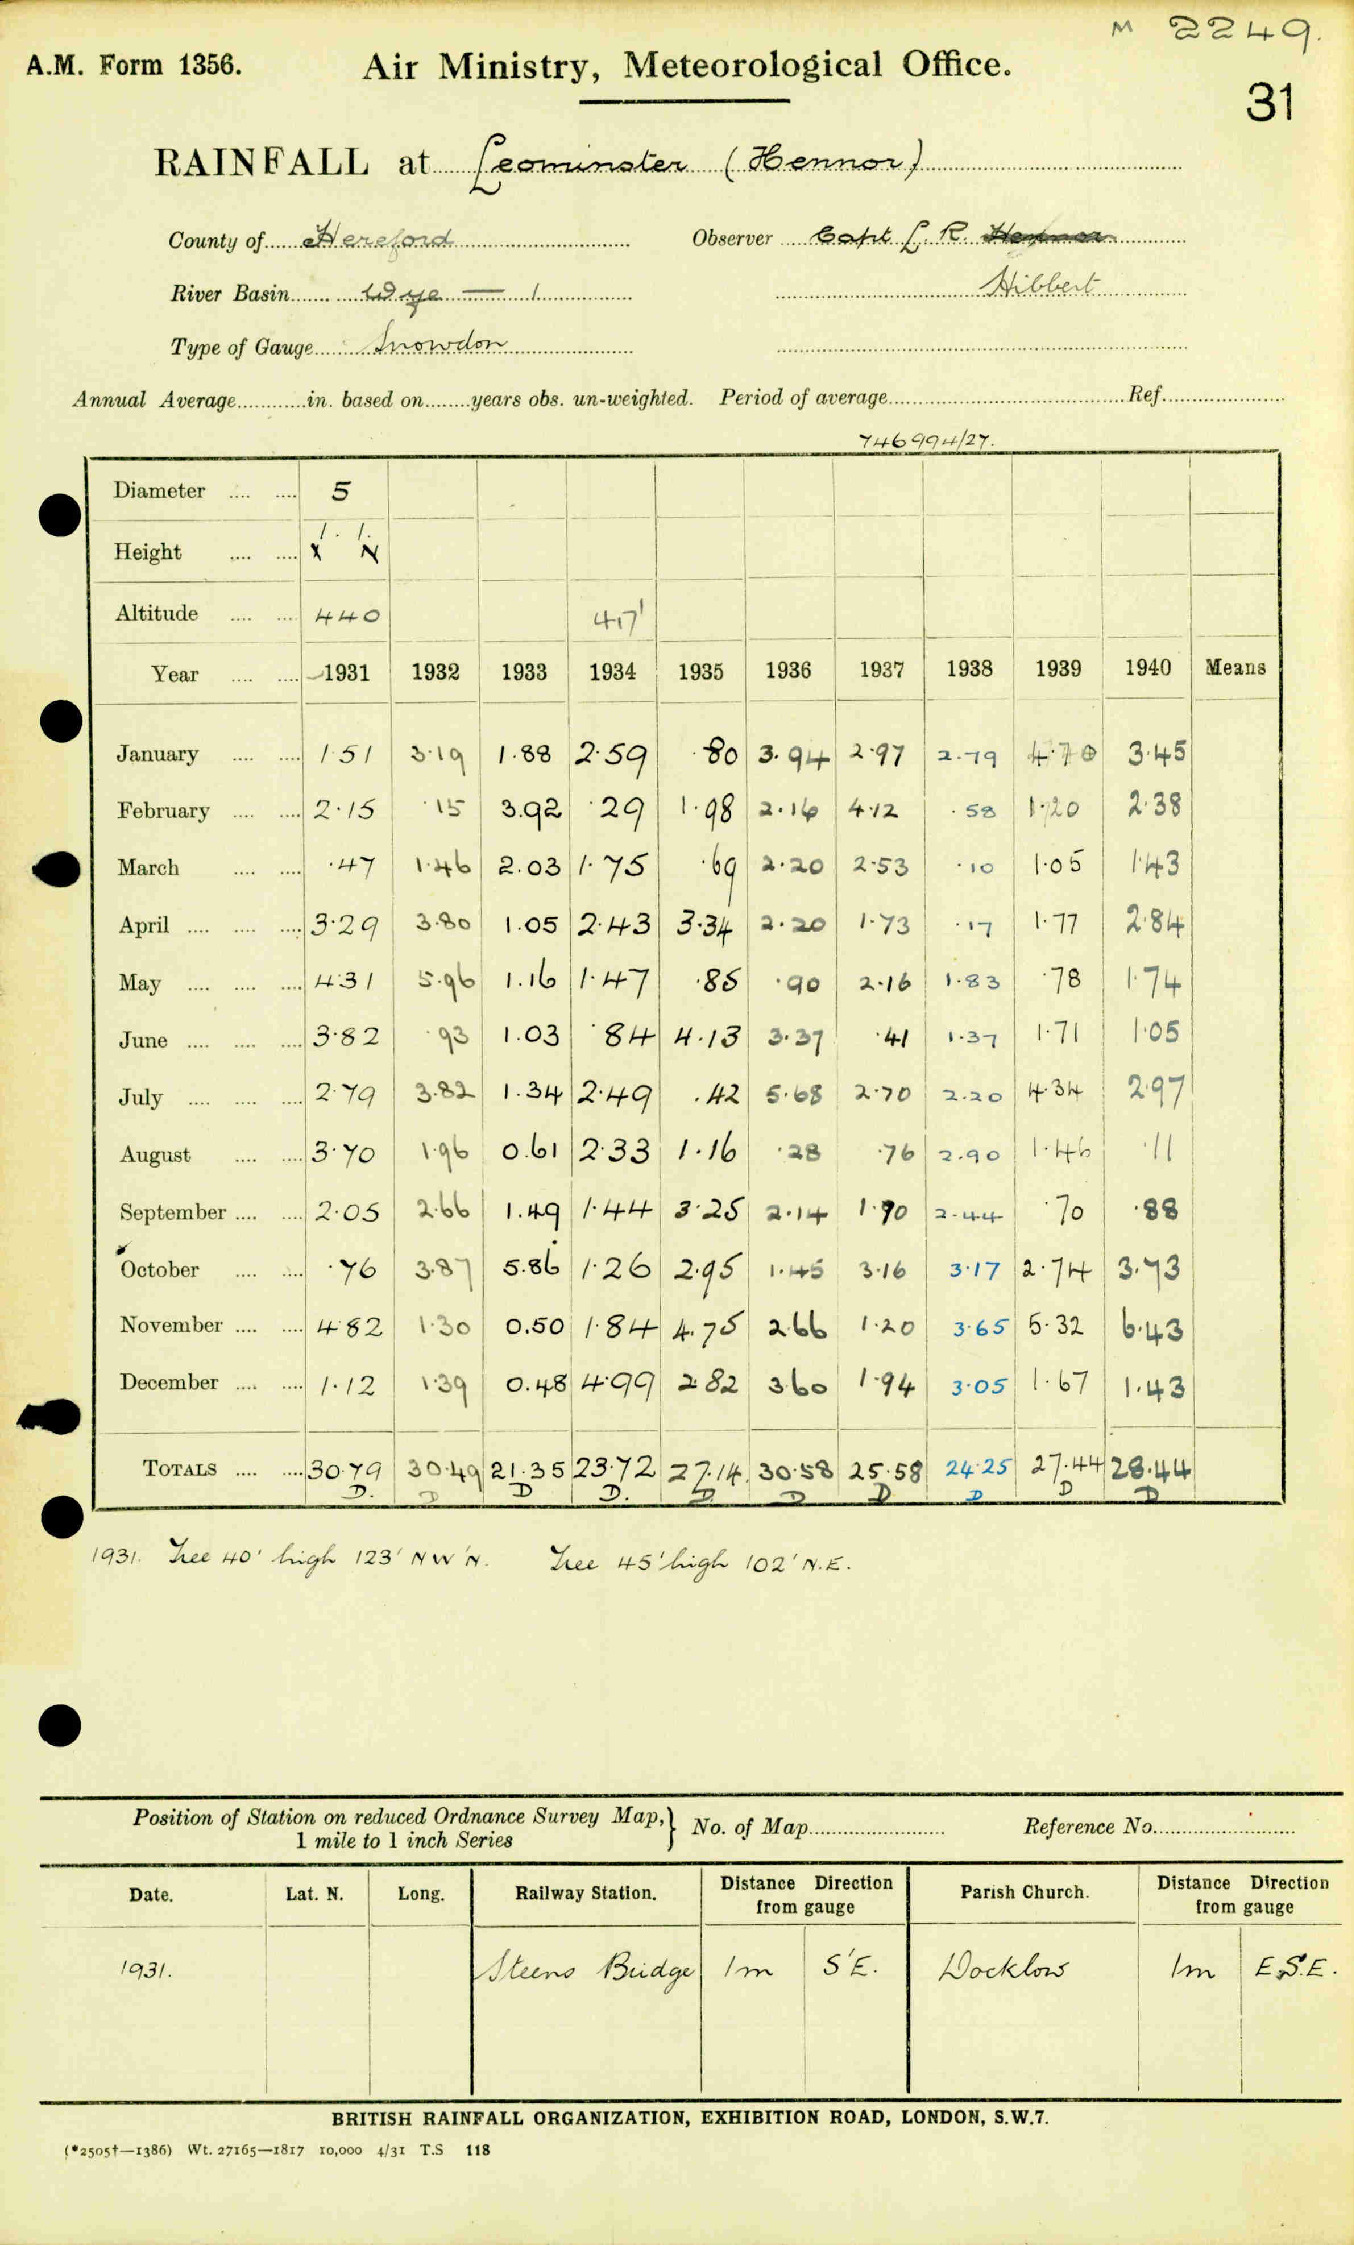 M 2249.
A.M. Form 1356. Air Ministry, Meteorological Office.
31
RAINFALL at Leominster (Hennor)
County of Hereford Observer Capt L. R. Hennor
River Basin Wye — 1 Hibbert
Type of Gauge Snowdon
Annual Average in. based on years obs. un-weighted. Period of average Ref.
746994/27.
Diameter 5
1. 1.
Height X N
Altitude 440 417'
Year 1931 1932 1933 1934 1935 1936 1937 1938 1939 1940 Means
January 1·51 3·19 1.88 2·59 ·80 3.94 2·97 2.79 4·70 3·45
February 2·15 ·15 3.92 ·29 1·98 2·16 4·12 ·58 1·20 2·38
March ·47 1·46 2.03 1·75 ·69 2·20 2·53 ·10 1·05 1·43
April 3·29 3·80 1.05 2·43 3·34 2·20 1·73 ·17 1·77 2·84
May 4·31 5·96 1.16 1·47 ·85 ·90 2·16 1·83 ·78 1·74
June 3·82 ·93 1.03 ·84 4·13 3·37 ·41 1·37 1·71 1·05
July 2·79 3·82 1.34 2·49 .42 5·68 2·70 2·20 4·34 2·97
August 3·70 1·96 0.61 2·33 1·16 ·28 ·76 2.90 1·46 ·11
September 2·05 2·66 1.49 1·44 3·25 2·14 1·90 2·44 ·70 ·88
October ·76 3·87 5.86 1·26 2·95 1·45 3·16 3·17 2·74 3·73
November 4·82 1·30 0.50 1·84 4.75 2·66 1·20 3·65 5·32 6·43
December 1·12 1·39 0.48 4·99 2·82 3·60 1·94 3·05 1·67 1·43
TOTALS 30·79 30·49 21.35 23·72 27·14 30·58 25·58 24·25 27·44 28·44
D. D D D. D D D D D D
1931. Tree 40' high 123' NW'N. Tree 45' high 102' N.E.
Position of Station on reduced Ordnance Survey Map, No. of Map Reference No.
1 mile to 1 inch Series
Date. Lat. N. Long. Railway Station. Distance Direction from gauge Parish Church. Distance Direction from gauge
1931. Steens Bridge 1m S'E. Docklow 1m E.S.E.
BRITISH RAINFALL ORGANIZATION, EXHIBITION ROAD, LONDON, S.W.7.
(*2505†—1386) Wt. 27165—1817 10,000 4/31 T.S 118